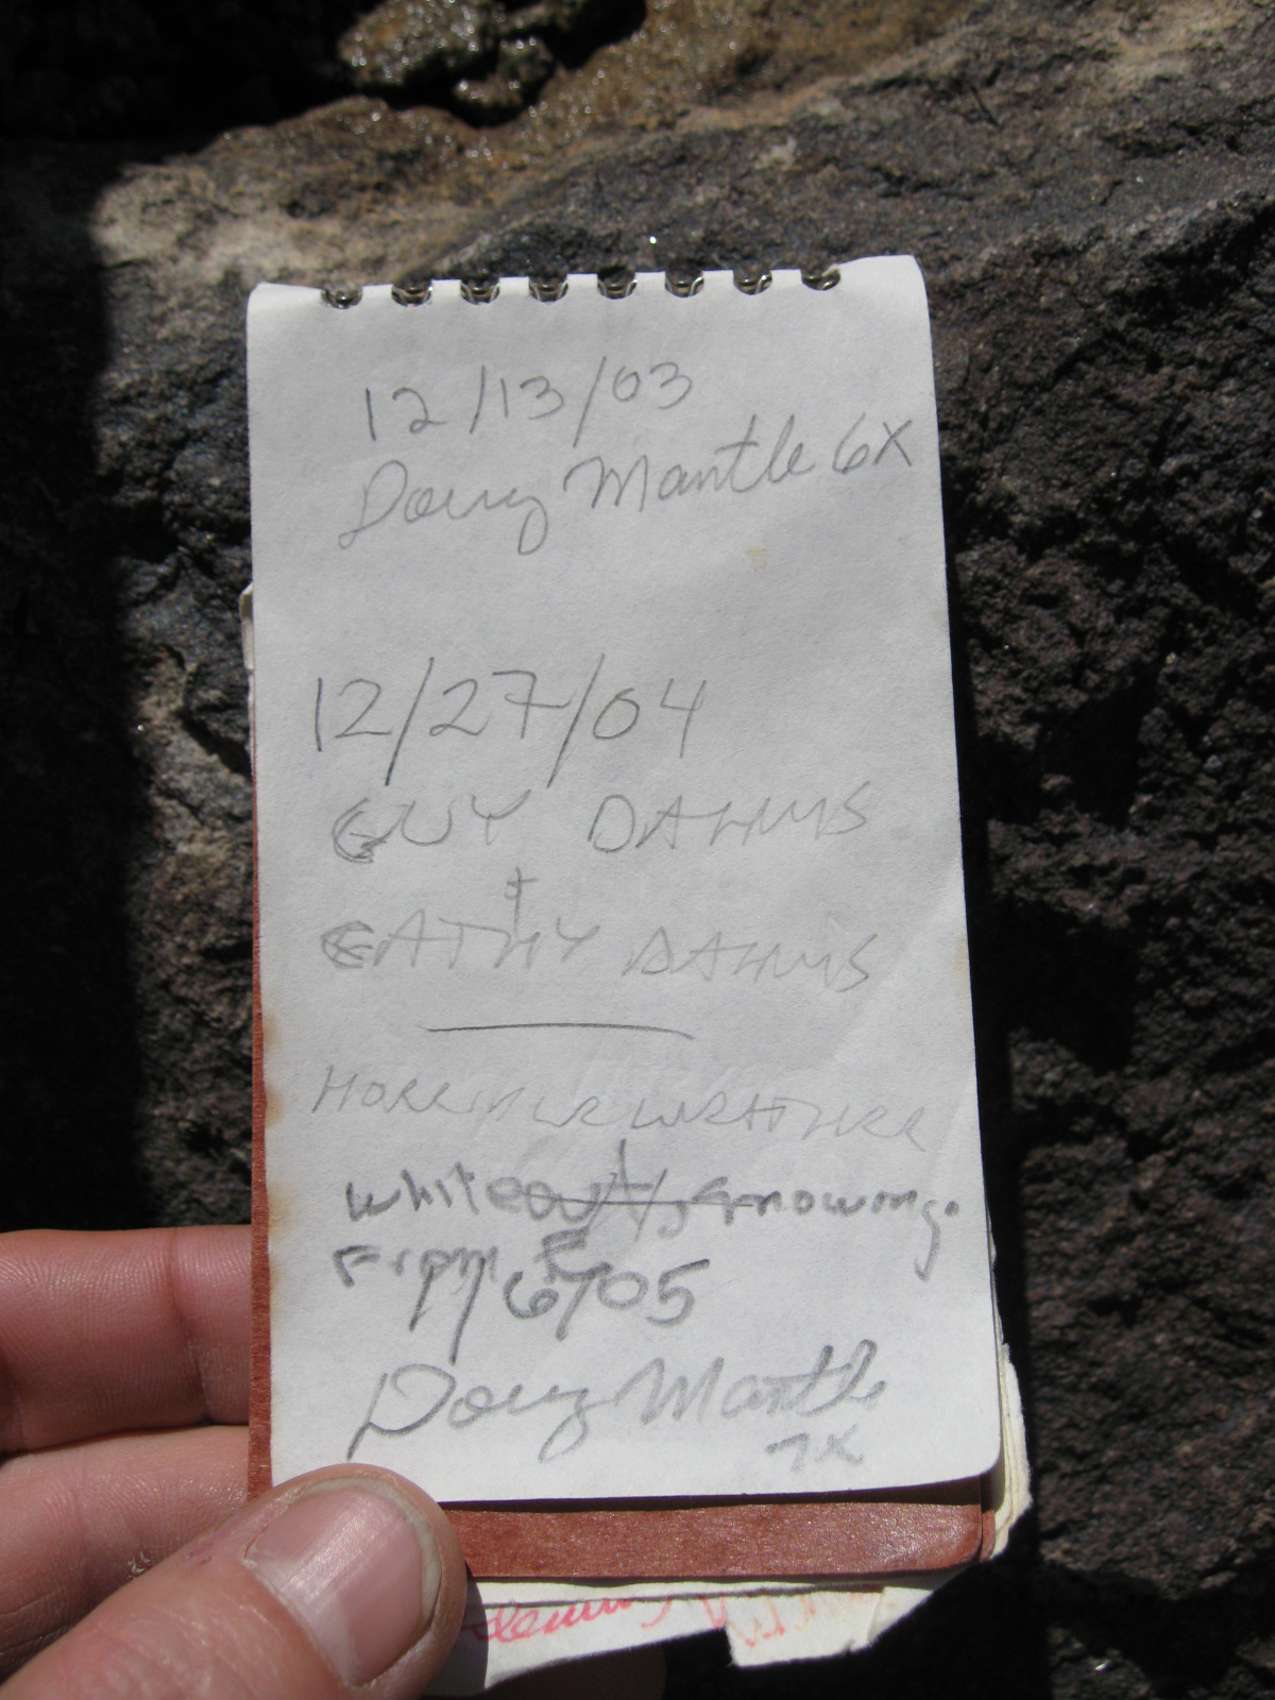 12/13/03
Doug Mantle 6X
12/27/04
GUY DAHMS
+
CATHY DAHMS
HORRIBLE WEATHER
whiteout, snowing.
From E
1/6/05
Doug Mantle
7X